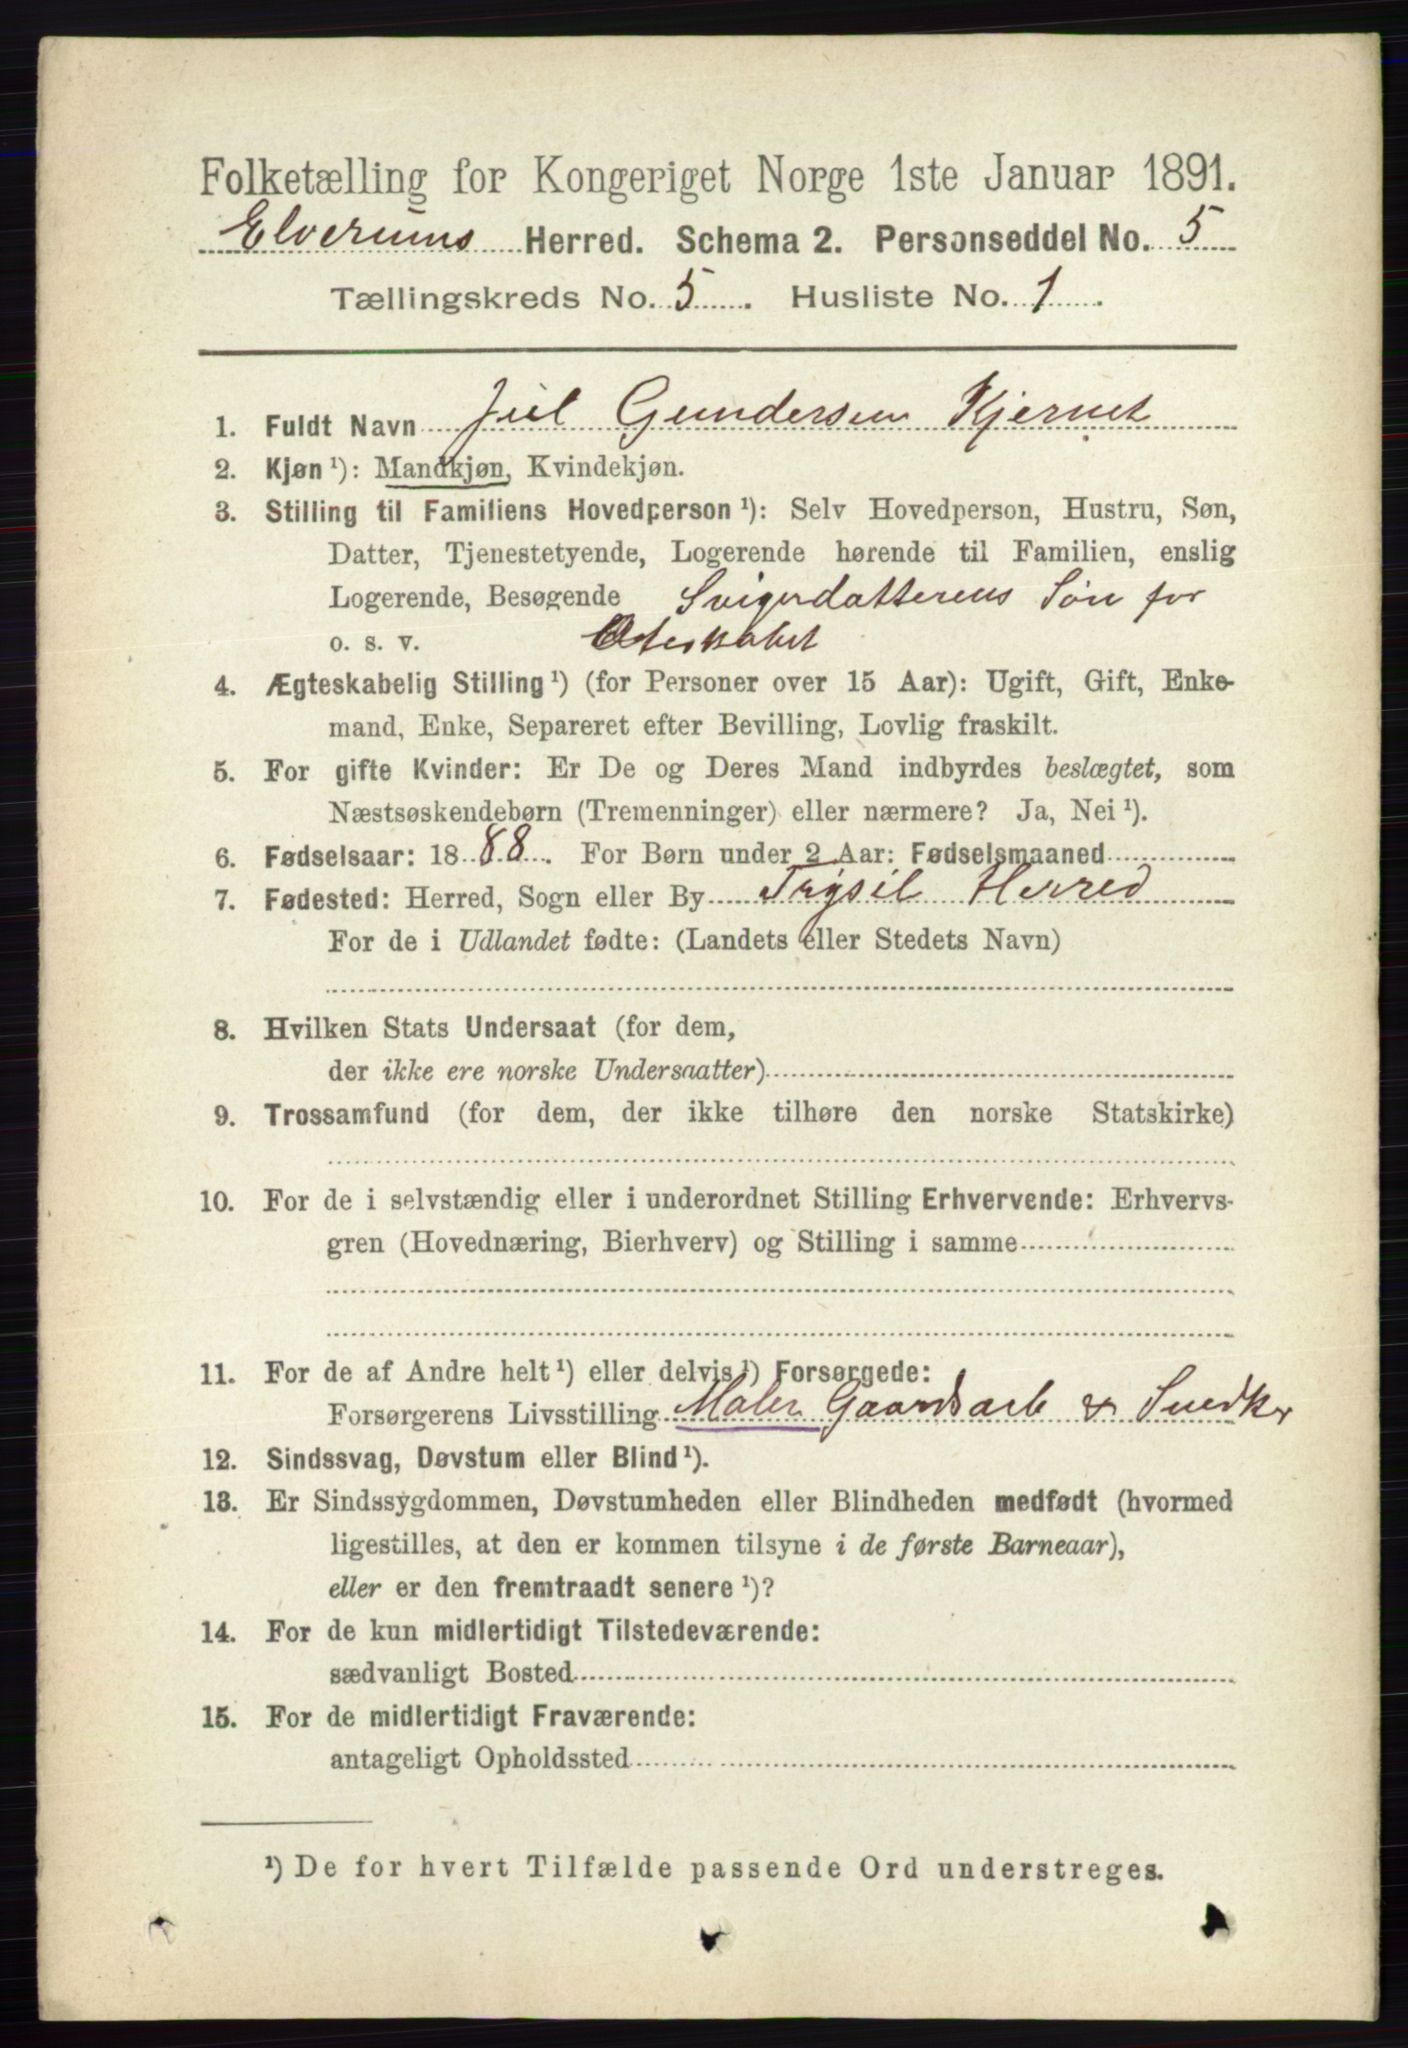 Folketælling for Kongeriget Norge 1ste Januar 1891.
Elverums Herred. Schema 2. Personseddel No. 5
Tællingskreds No. 5. Husliste No. 1.
1. Fuldt Navn Juel Gundersen Kjernet
2. Kjøn ¹): Mandkjøn, Kvindekjøn.
3. Stilling til Familiens Hovedperson ¹): Selv Hovedperson, Hustru, Søn,
Datter, Tjenestetyende, Logerende hørende til Familien, enslig
Logerende, Besøgende Svigerdatterens Søn før
o. s. v. Ægteskabet
4. Ægteskabelig Stilling ¹) (for Personer over 15 Aar): Ugift, Gift, Enke-
mand, Enke, Separeret efter Bevilling, Lovlig fraskilt.
5. For gifte Kvinder: Er De og Deres Mand indbyrdes beslægtet, som
Næstsøskendebørn (Tremenninger) eller nærmere? Ja, Nei ¹).
6. Fødselsaar: 1888. For Børn under 2 Aar: Fødselsmaaned
7. Fødested: Herred, Sogn eller By Trysil Herred
For de i Udlandet fødte: (Landets eller Stedets Navn)
8. Hvilken Stats Undersaat (for dem,
der ikke ere norske Undersaatter)
9. Trossamfund (for dem, der ikke tilhøre den norske Statskirke)
10. For de i selvstændig eller i underordnet Stilling Erhvervende: Erhvervs-
gren (Hovednæring, Bierhverv) og Stilling i samme
11. For de af Andre helt ¹) eller delvis ¹) Forsørgede:
Forsørgerens Livsstilling Maler Gaardsarb & Snedker
12. Sindssvag, Døvstum eller Blind ¹).
13. Er Sindssygdommen, Døvstumheden eller Blindheden medfødt (hvormed
ligestilles, at den er kommen tilsyne i de første Barneaar),
eller er den fremtraadt senere ¹)?
14. For de kun midlertidigt Tilstedeværende:
sædvanligt Bosted
15. For de midlertidigt Fraværende:
antageligt Opholdssted
¹) De for hvert Tilfælde passende Ord understreges.